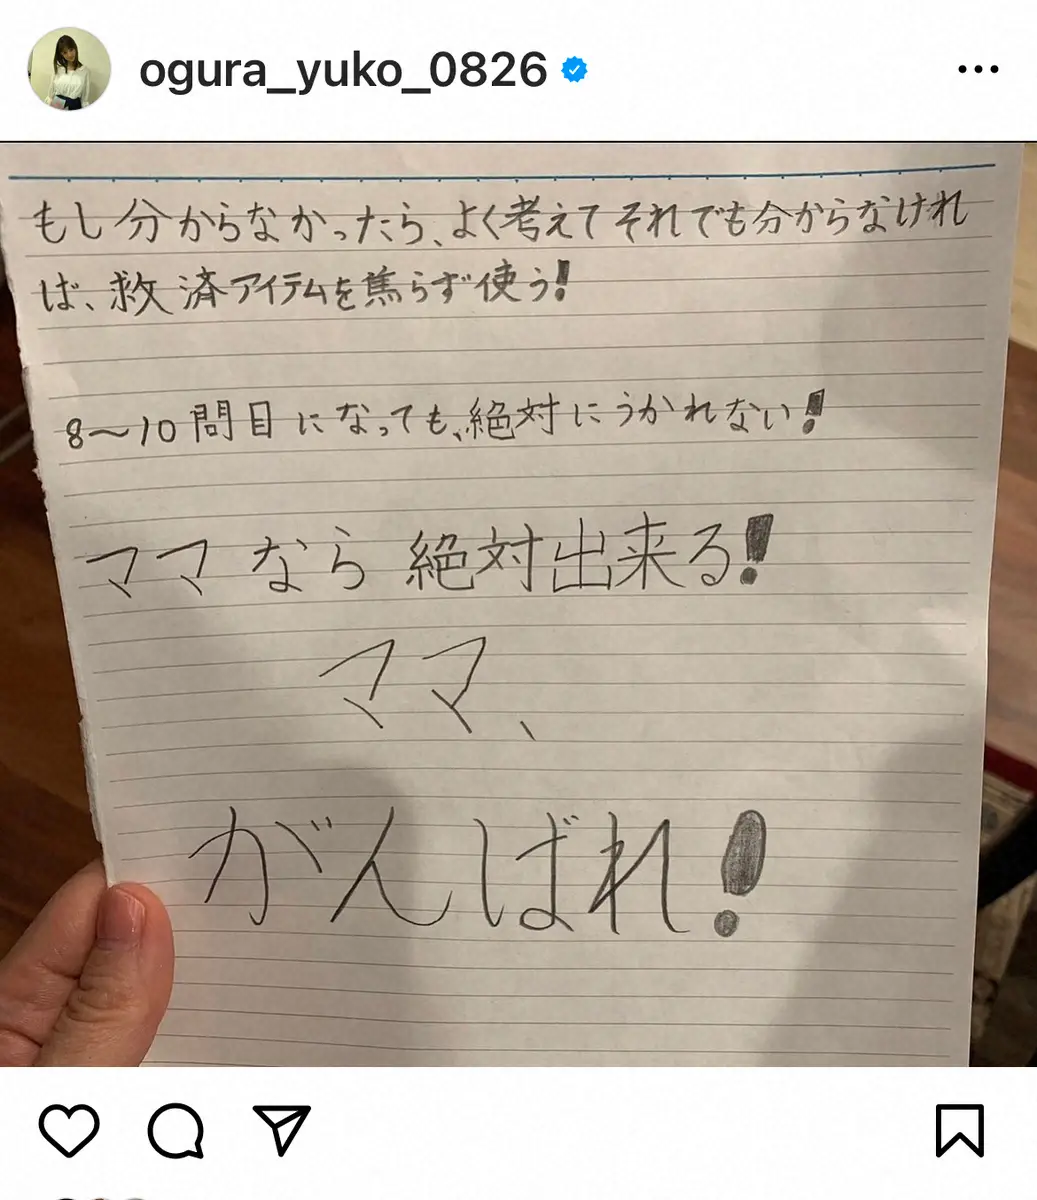 ogura_yuko_0826
もし分からなかったら、よく考えてそれでも分からなけれ
ば、救済アイテムを焦らず使う!
8～10問目になっても、絶対にうかれない!
ママなら絶対出来る!
ママ、
がんばれ!